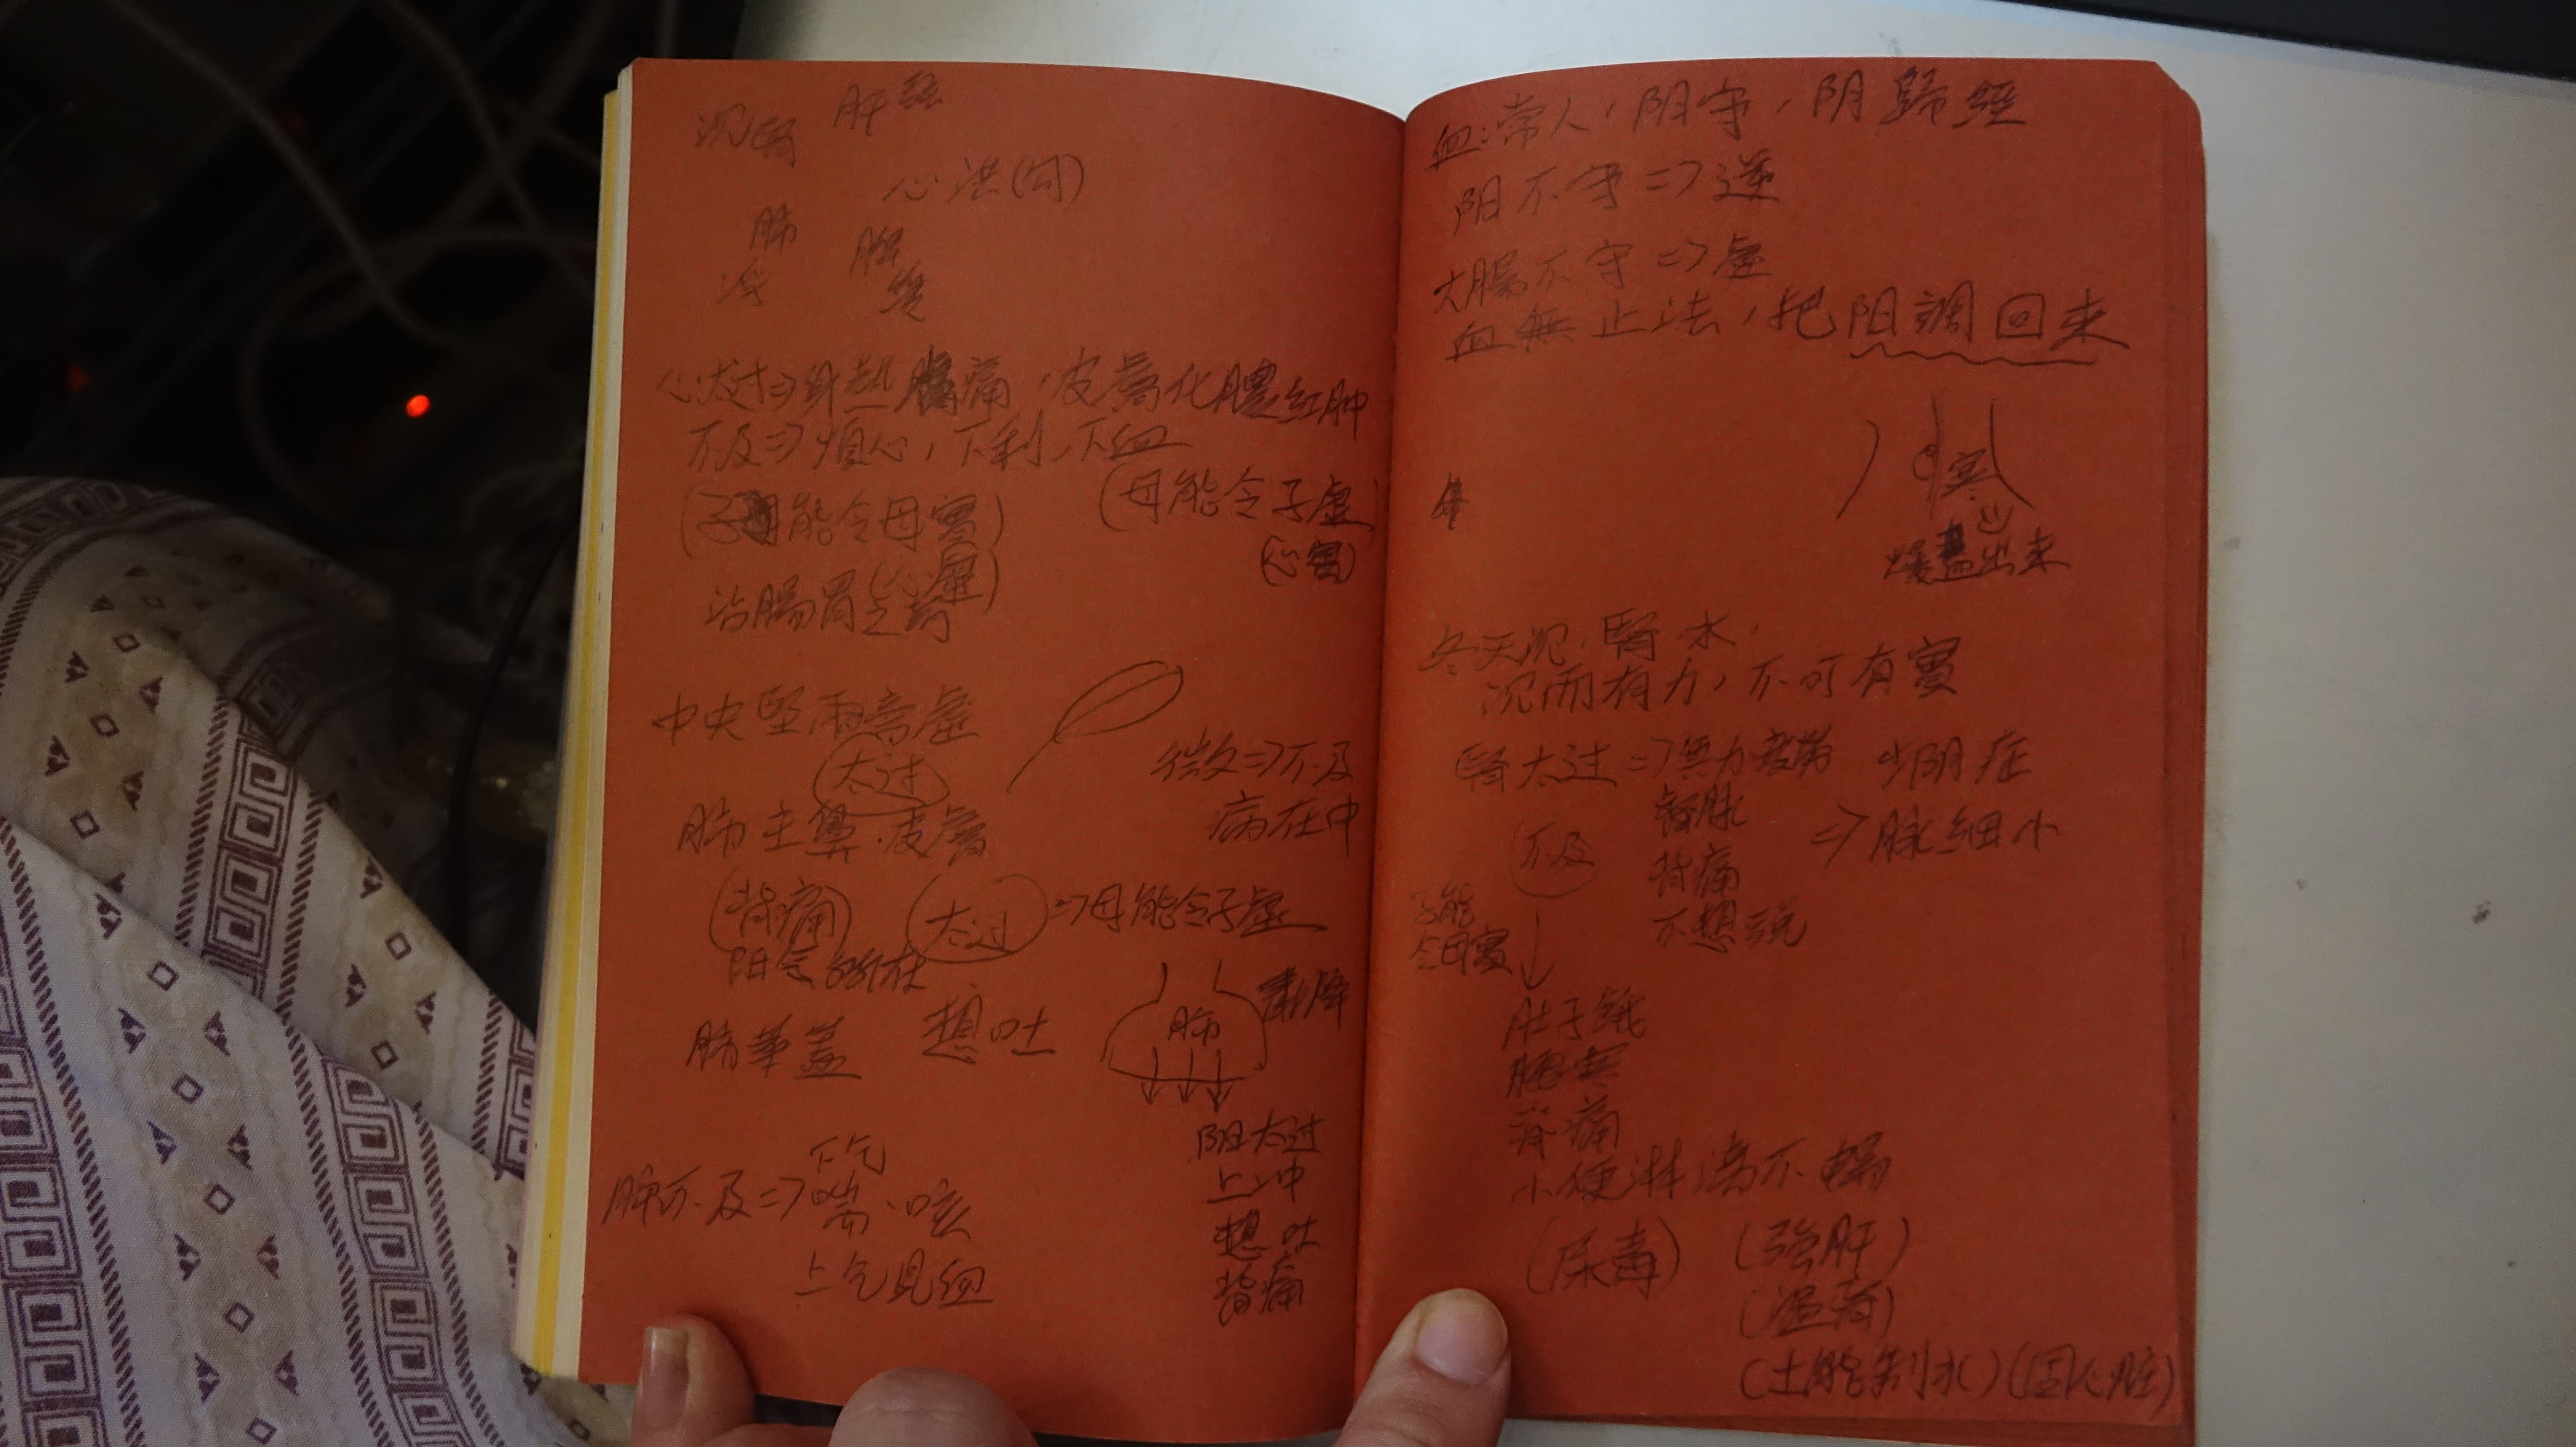 沉腎 肝弦
心洪(勾)
肺 脾
浮 緩
心太过⇒身热 痛,皮膚化膿红肿
不及⇒烦心,下利,下血
(子能令母實) (母能令子虛)
(心虛) (心實)
治腸胃之药
中央堅兩旁虛
太过 微⇒不及
肺主鼻.皮膚 病在中
背痛 太过⇒母能令子虛
阳气所在
肺華蓋 想吐 肺
阳太过
下气 上冲
肺不及⇒喘.咳 想吐
上气見血 背痛
血:常人,阳守,阴歸經
阳不守⇒逆
大腸不守⇒虛
血無止法,把阳調回来
寒
爆 出来
冬天沉.腎水.
沉而有力,不可有實
腎太过⇒無力疲勞 少阴症
脉 ⇒脉細小
不及 背痛
子能 不想说
令母實
肚子餓
脊痛
小便淋漓不暢
(尿毒) (強肝)
(溫腎)
(土能制水)(固心脏)